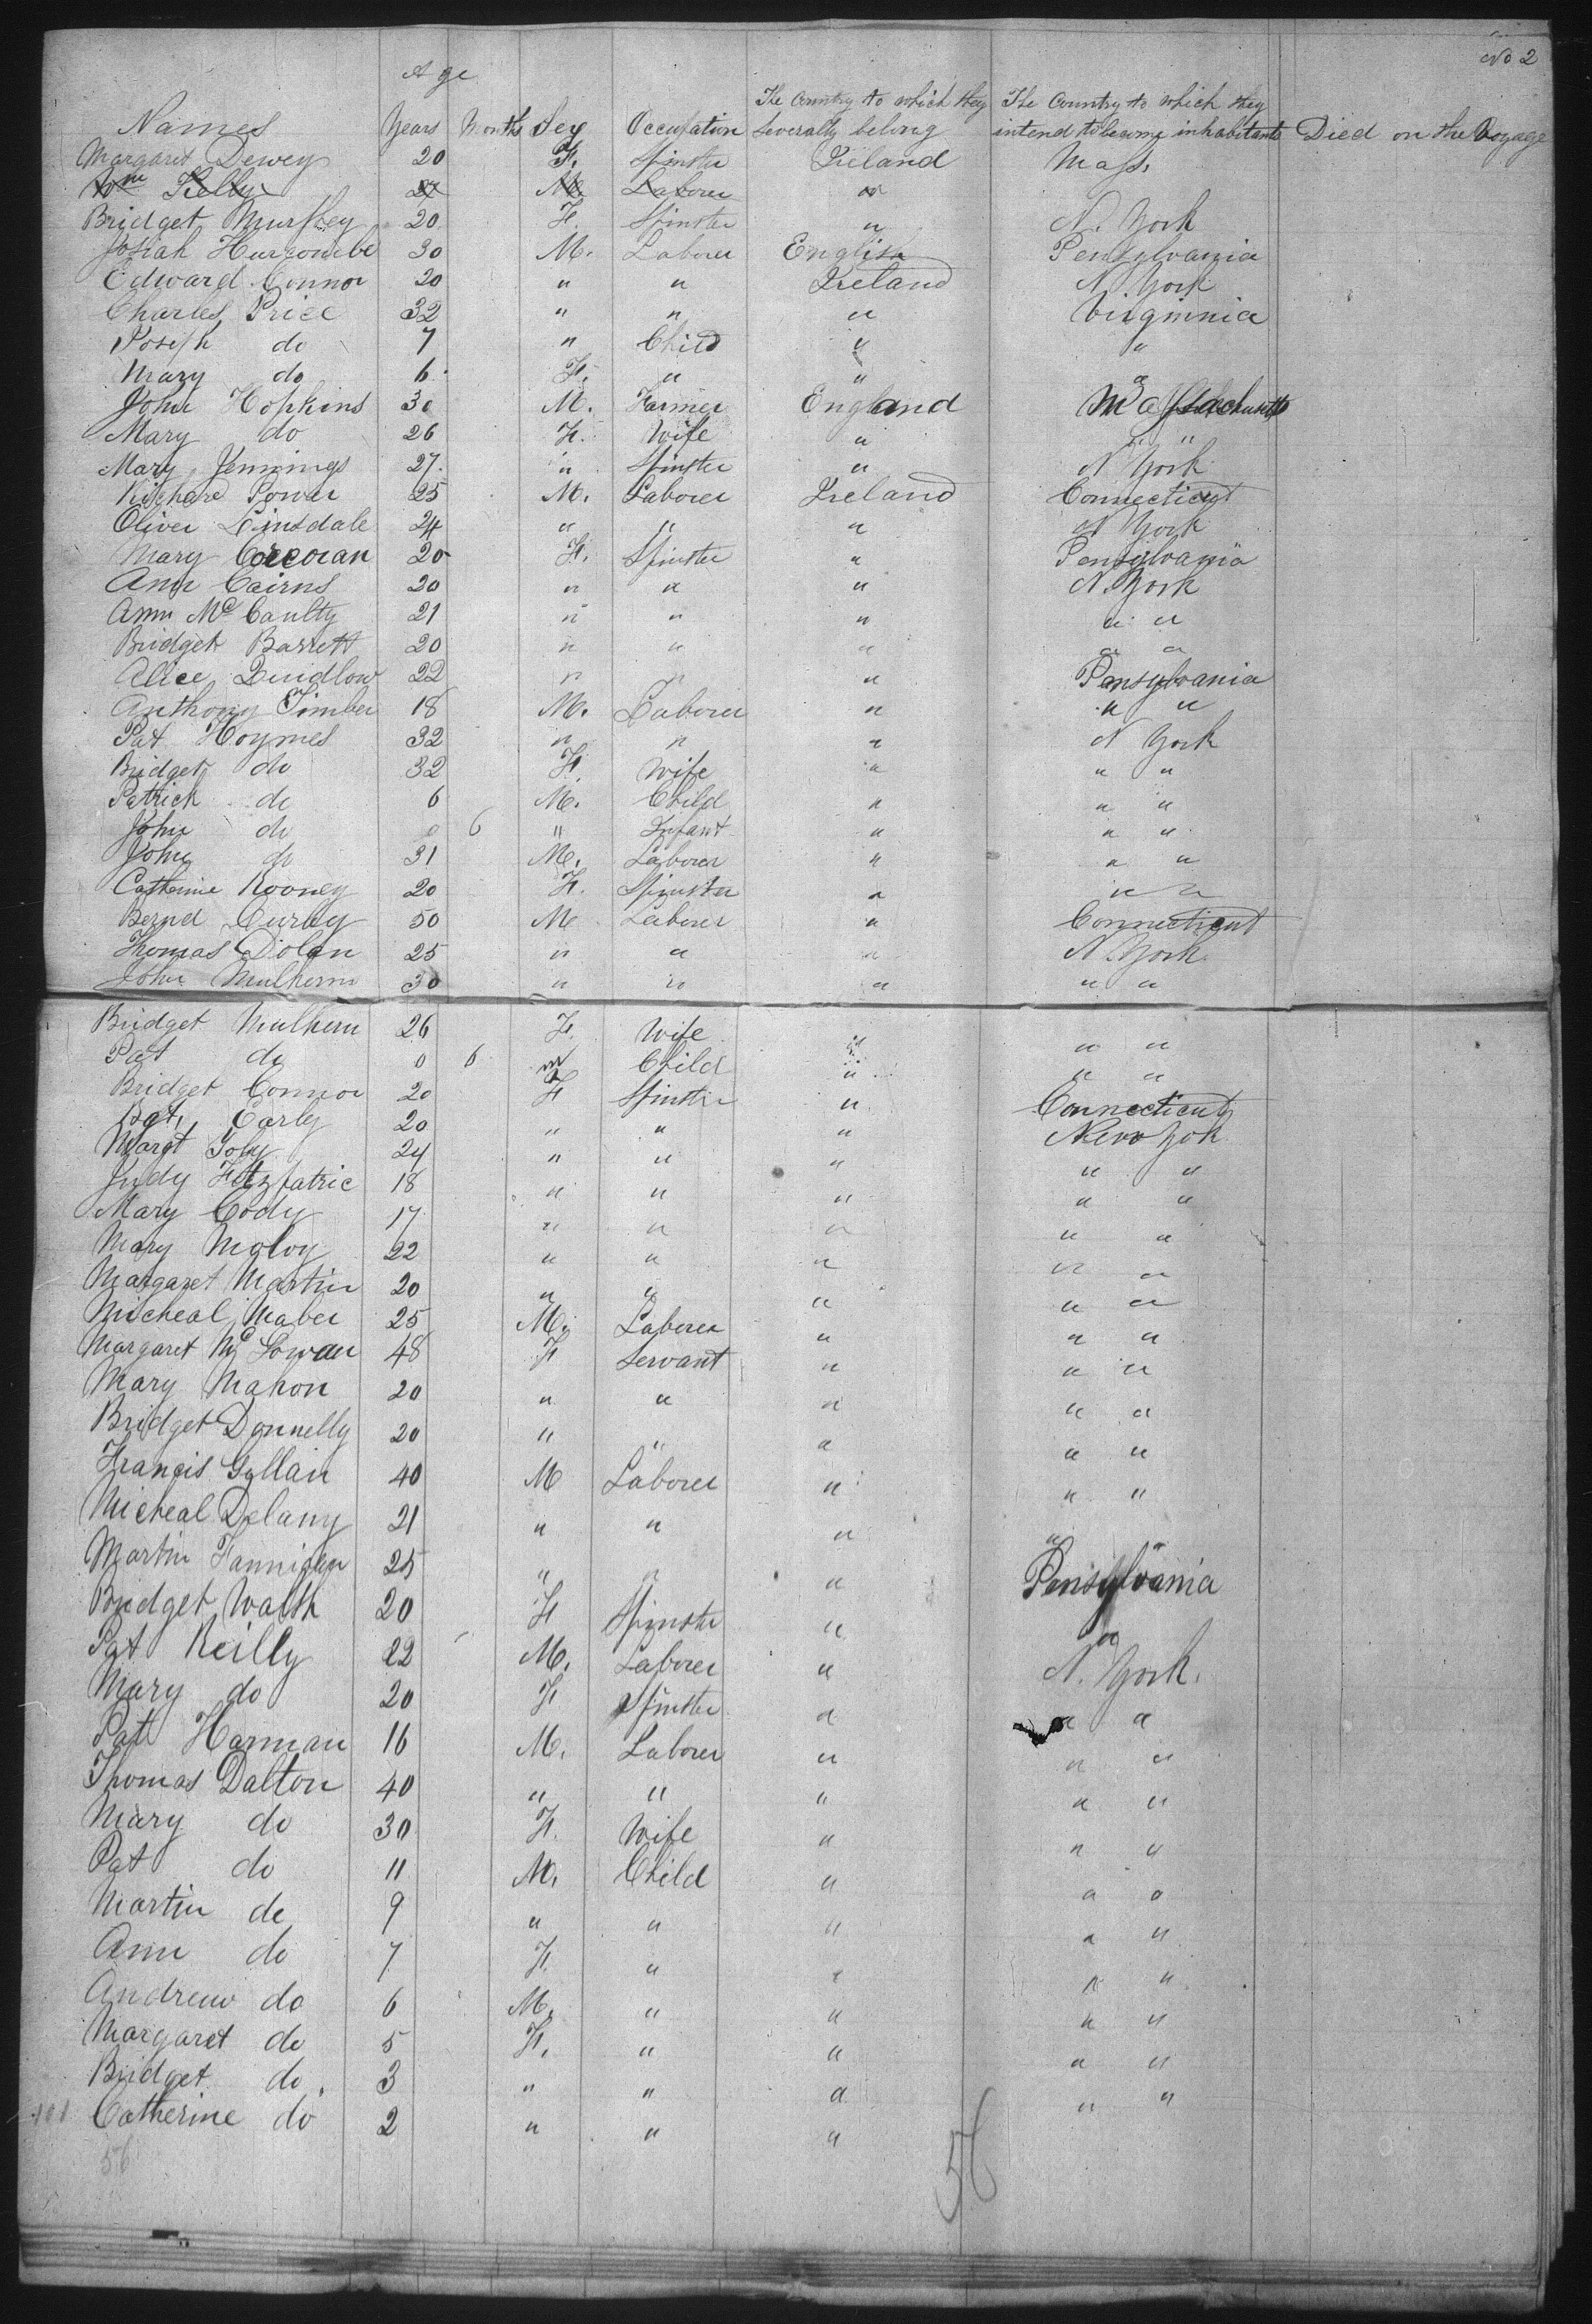 No 2
Age
Names Years Months Sex Occupation The Country to which they severally belong The Country to which they intend to become inhabitants Died on the Voyage
Margaret Dewey 20 F. Spinster Ireland Mass.
Wm Kelly 27 M Laborer "
Bridget Murphey 20 F. Spinster " N. York
Josiah Hurgombe 30 M. Laborer English Pensylvania
Edward Connor 20 " " Ireland N York
Charles Price 32 " " " Virginnia
Joseph do 7 " Child " "
Mary do 6 F. " " "
John Hopkins 30 M. Farmer England Massachusetts
Mary do 26 F. Wife " "
Mary Jennings 27 " Spinster " N York
Richard Power 25 M. Laborer Ireland Connecticut
Oliver Linsdale 24 " " " N York
Mary Corcoran 20 F. Spinster " Pensylvania
Ann Cairns 20 " " " N. York
Ann McCaulty 21 " " " " "
Bridget Barrett 20 " " " " "
Alice Dindlow 22 " " " Pensylvania
Anthony Timber 18 M. Laborer " " "
Pat Hoymes 32 " " " N York
Bridget do 32 F. Wife " " "
Patrick do 6 M. Child " " "
John do 0 6 " Infant " " "
John do 31 M. Laborer " " "
Catherine Rooney 20 F. Spinster " " "
Bernd Curley 50 M Laborer " Connecticut
Thomas Dolan 25 " " " N. York
John Mulhern 30 " " " " "
Bridget Mulhern 26 F. Wife " " "
Pat do 0 6 M Child " " "
Bridget Connor 20 F Spinster " Connecticut
Bgt. Early 20 " " " New Yok
Margt Foly 24 " " " " "
Judy Fitzpatric 18 " " " " "
Mary Cody 17 " " " " "
Mary Moloy 22 " " " " "
Margaret Martin 20 " " " " "
Micheal Maber 25 M. Laborer " " "
Margaret McGowan 48 F Servant " " "
Mary Mahon 20 " " " " "
Bridget Donnelly 20 " " " " "
Francis Gyllan 40 M Laborer " " "
Micheal Delany 21 " " " " "
Martin Fannigan 25 " " " Pensylvania
Bridget Walsh 20 F Spinster " "
Pat Reilly 22 M. Laborer " N. York.
Mary do 20 F Spinster " " "
Pat Harman 16 M. Laborer " " "
Thomas Dalton 40 " " " " "
Mary do 30 F. Wife " " "
Pat do 11 M. Child " " "
Martin do 9 " " " " "
Ann do 7 F. " " " "
Andrew do 6 M. " " " "
Margaret do 5 F. " " " "
Bridget do. 3 " " " " "
101 Catherine do 2 " " "
56 56